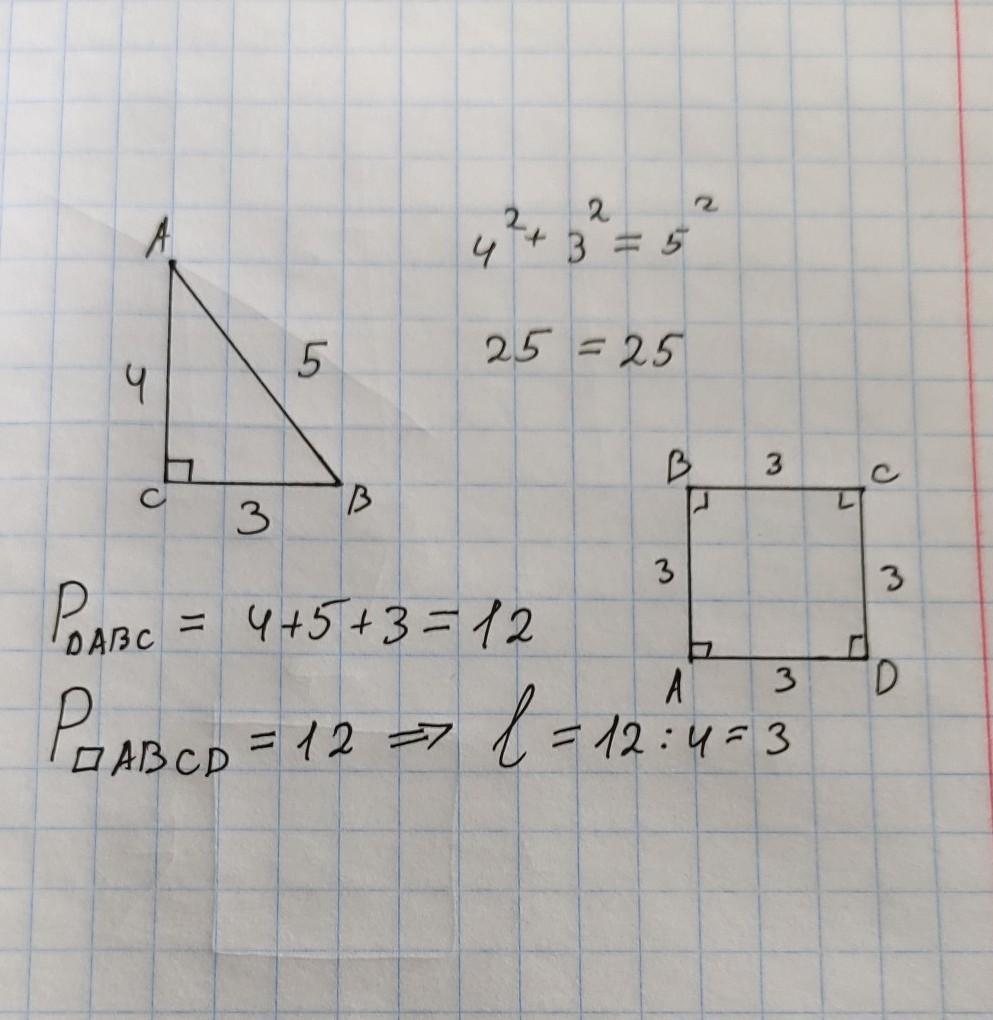 A
4
5
C
3
B
4² + 3² = 5²
25 = 25
B 3 C
3
3
A 3 D
P△ABC = 4+5+3=12
P□ABCD = 12 ⇒ l = 12:4= 3